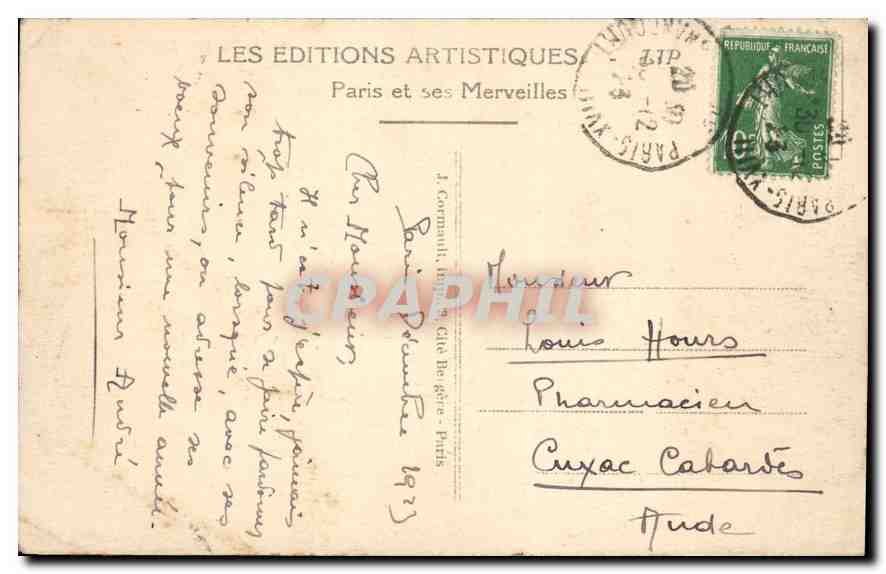 LES EDITIONS ARTISTIQUES
Paris et ses Merveilles
J. Cormault, Impr., Cité Bergère - Paris
Paris Décembre 1923
Cher Monsieur,
Il n'est, j'espère, jamais
trop tard pour se faire pardonner
son silence, lorsque, avec ses
souvenirs, on adresse ses
voeux pour une nouvelle année.
Monsieur André
REPUBLIQUE FRANÇAISE
POSTES
PARIS-XVIII
20 30
-12
23
PARIS-XVIII
Monsieur
Louis Hours
Pharmacien
Cuxac Cabardès
Aude
CPAPHIL